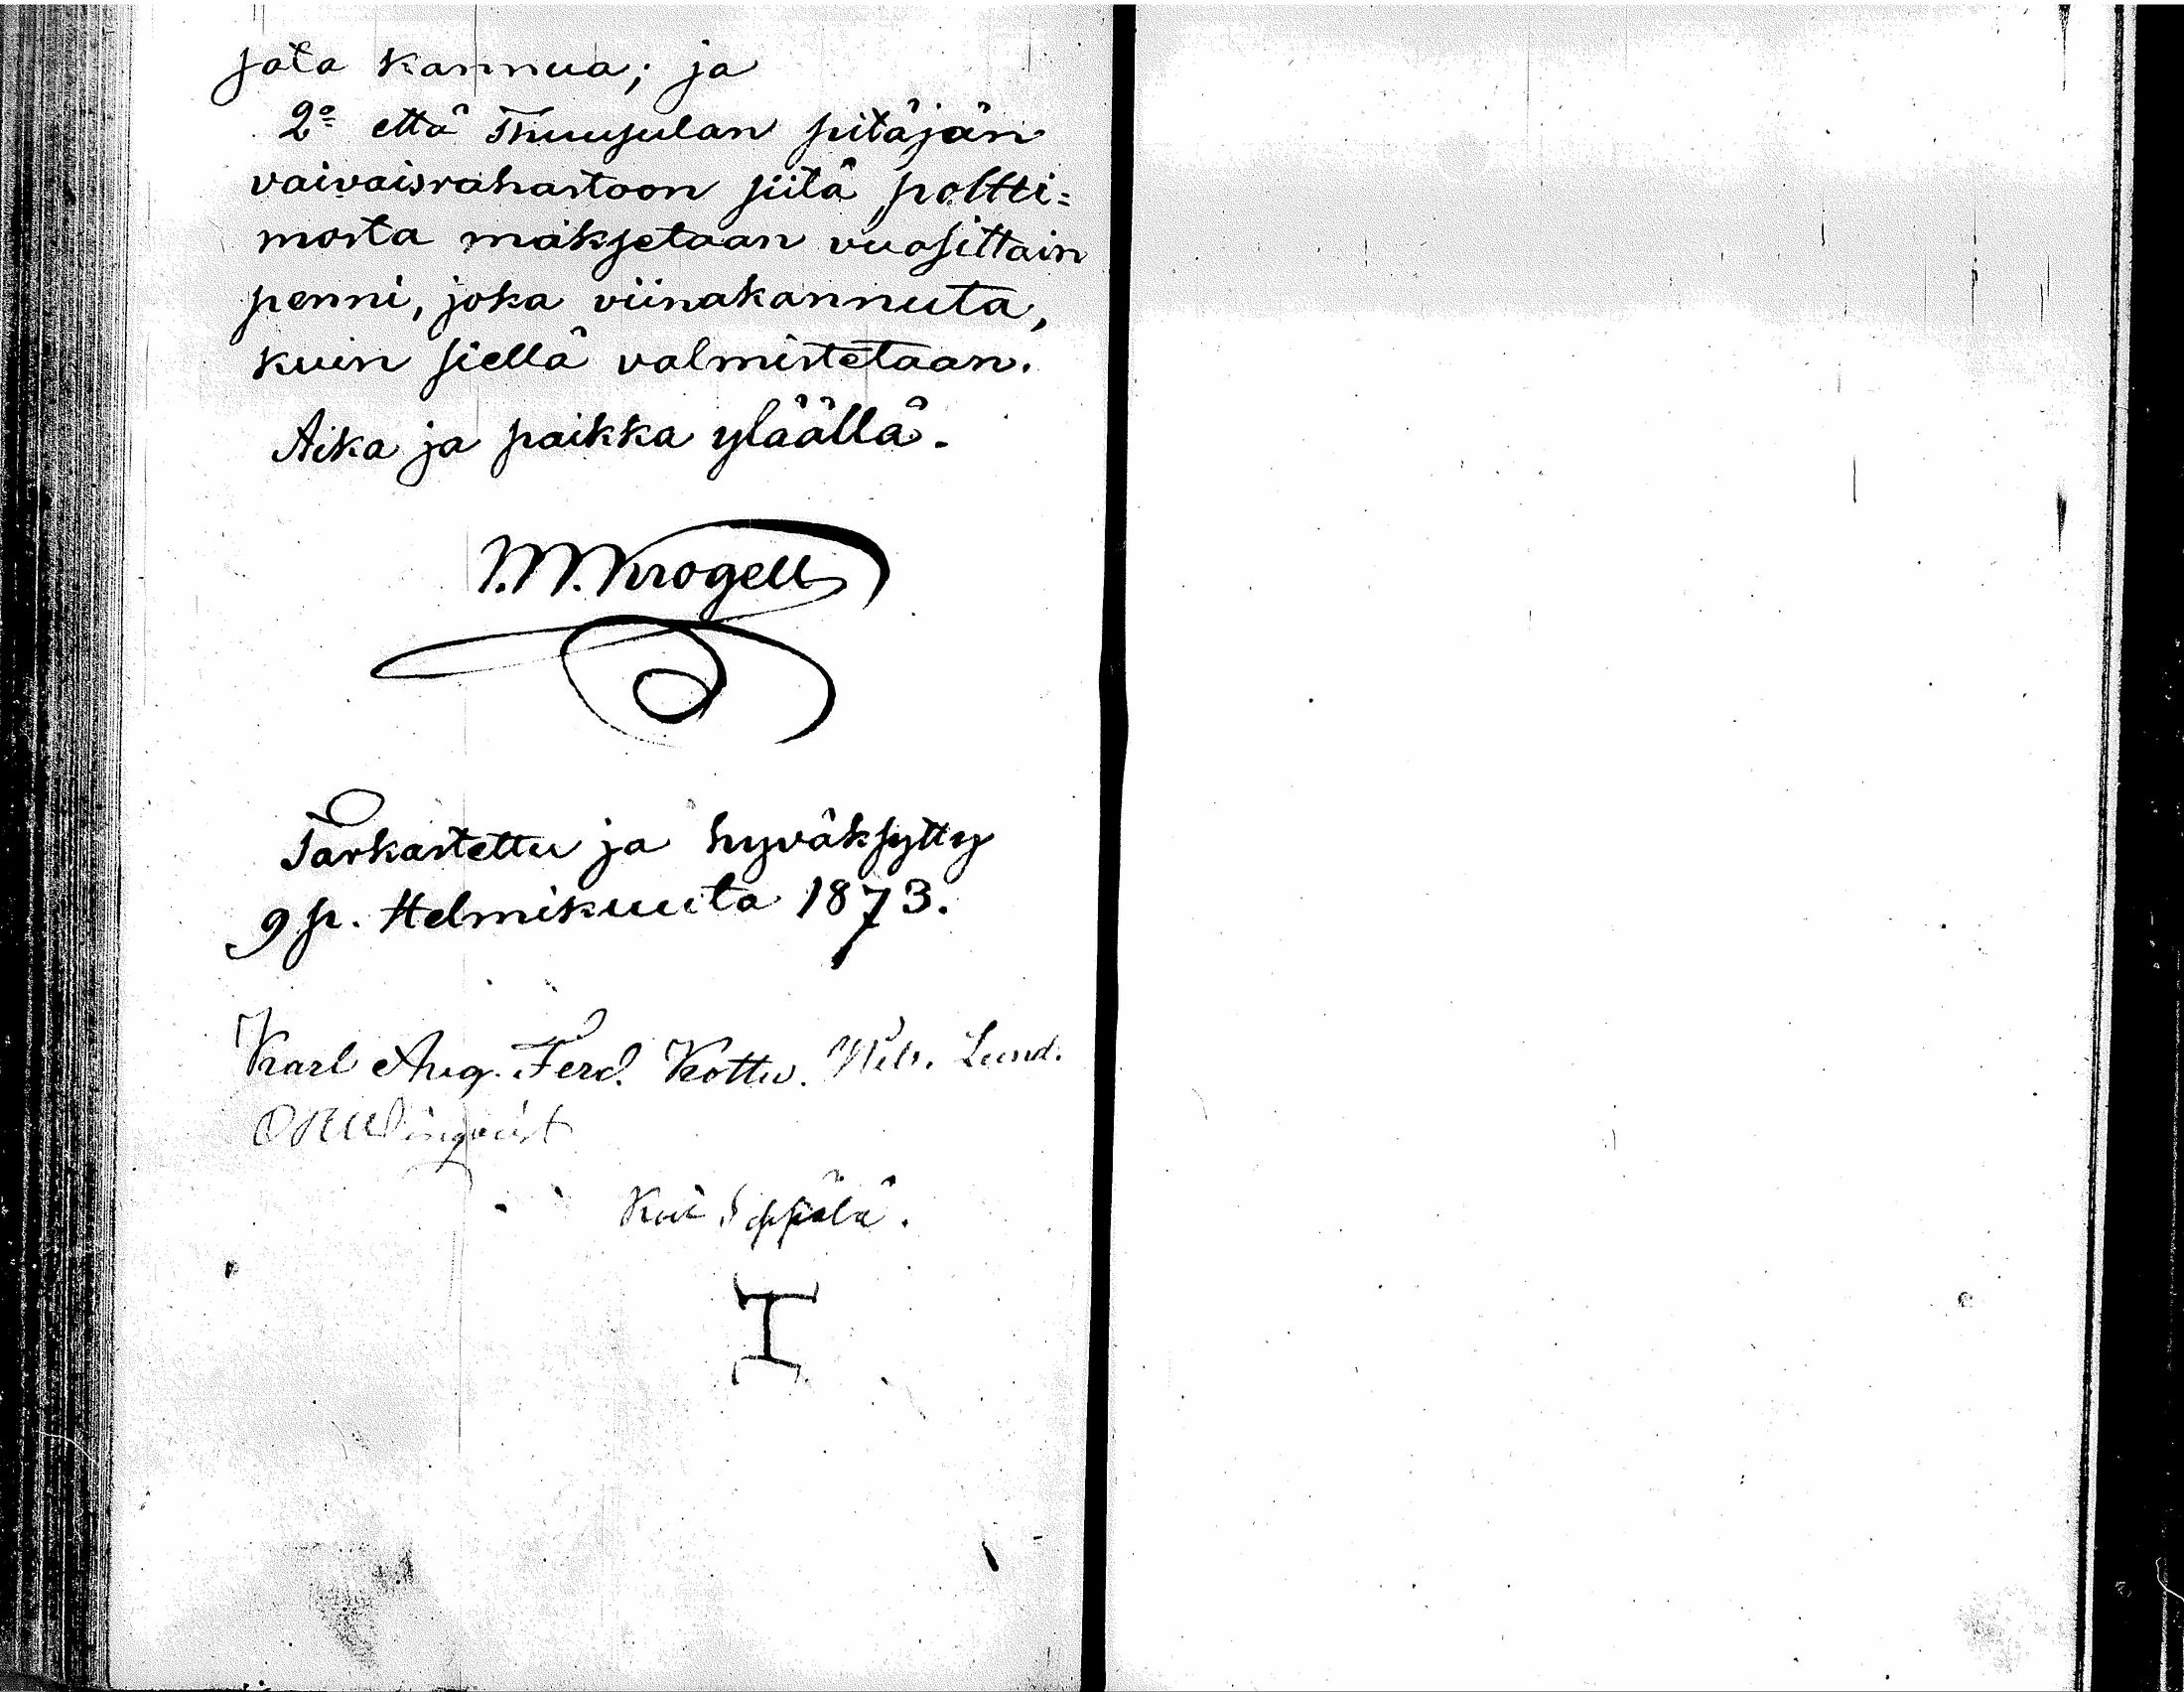 sata kannua; ja
2o että Thuusulan pitäjän
vaivaisrahastoon siitä poltti=
mosta maksetaan vuosittain
penni, joka viinakannuta,
kuin siellä valmistetaan.
Aika ja paikka ylläällä.
I. W. Krogell
Tarkastettu ja hyväksytty
9 p. Helmikuuta 1873.
Karl Aug. Ferd. Lund.
Seppälä.